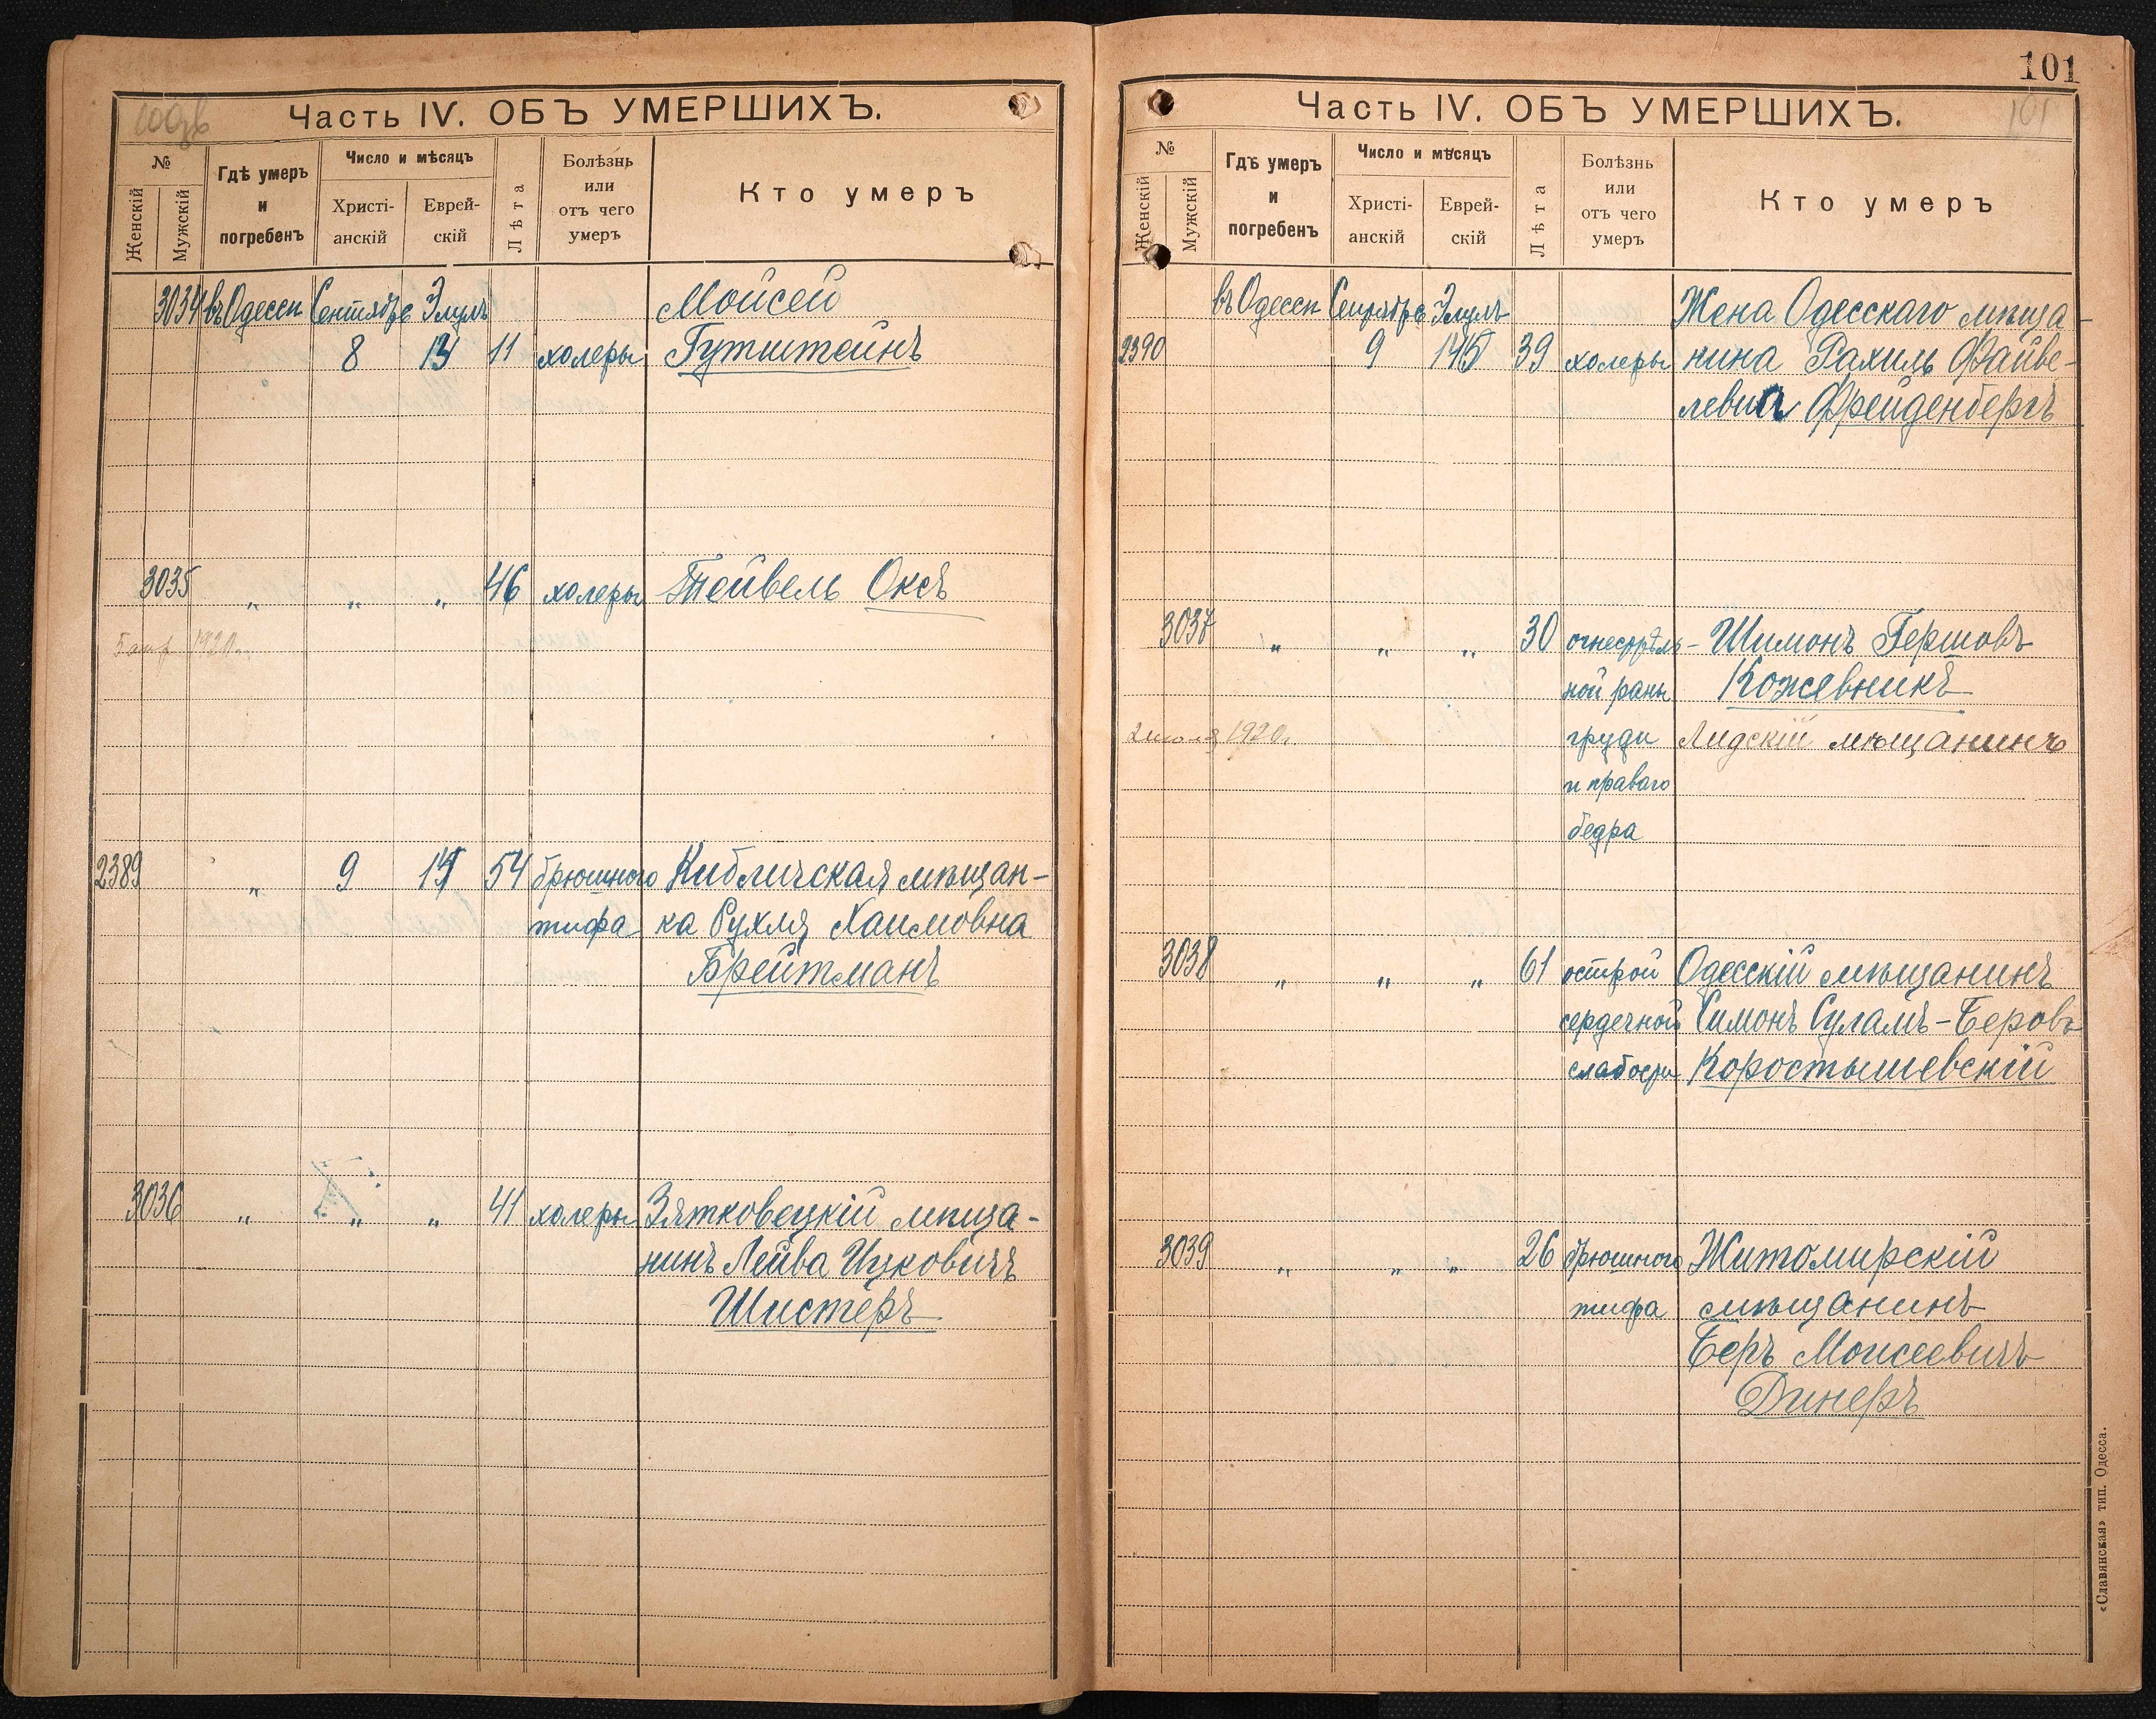 Часть IV. ОБЪ УМЕРШИХЪ.
№
Женскій
Мужскій
Гдѣ умеръ
и
погребенъ
Число и мѣсяцъ
Христі-
анскій
Еврей-
скій
Лѣта
Болѣзнь
или
отъ чего
умеръ
Кто умеръ
3034 въ Одессѣ Сентябрь Элулъ Мойсей
8 11 холеры Гутштейнъ
3035 „ „ „ 46 холеры Тейвель Оксъ
1920г.
2389 „ 9 54 брюшного Кибличская мѣщан-
тифа ка Рухля Хаимовна
Брейтманъ
3036 „ „ „ 41 холеры Зятковецкій мѣща-
нинъ Лейва Ицковичъ
Шистеръ
101
Часть IV. ОБЪ УМЕРШИХЪ.
101
№
Женскій
Мужскій
Гдѣ умеръ
и
погребенъ
Число и мѣсяцъ
Христі-
анскій
Еврей-
скій
Лѣта
Болѣзнь
или
отъ чего
умеръ
Кто умеръ
въ Одессѣ Сентябрь Элулъ Жена Одесскаго мѣща-
2390 9 39 холеры нина Рахиль Файве-
левна Фрейденбергъ
3037 „ „ „ 30 огнестрѣль- Шимонъ Гершовъ
ной раны Кожевникъ
1920г. груди Лидскій мѣщанинъ
и праваго
бедра
3038 „ „ „ 61 острой Одесскій мѣщанинъ
сердечной Симонъ Суламъ-Беровъ
слабости Коростышевскій
3039 „ „ „ 26 брюшного Житомирскій
тифа мѣщанинъ
Беръ Моисеевичъ
Динеръ
«Славянская» тип. Одесса.